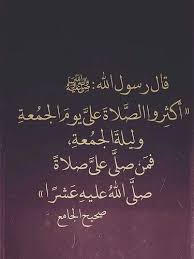 قال رسول الله: ﷺ
«أكثروا الصَّلاةَ عليَّ يومَ الجُمعةِ
وليلةَ الجُمعةِ،
فمَن صلَّى عليَّ صلاةً
صلَّى اللهُ عليهِ عَشرًا»
صحيح الجامع